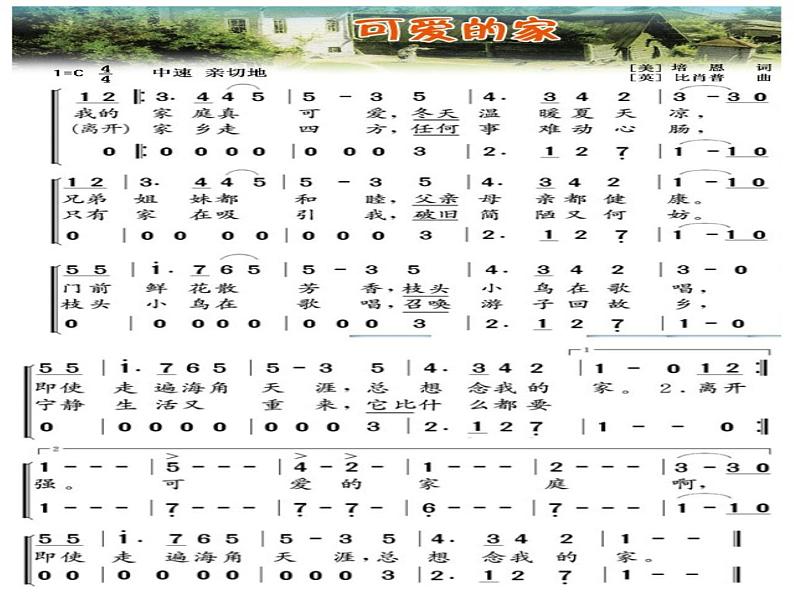 可爱的家
1=C 4/4 中速 亲切地 [美] 培恩 词
[英] 比肖普 曲
1 2 |: 3. 4 4 5 | 5 - 3 5 | 4. 3 4 2 | 3 - 3 0 |
我的 家庭真 可爱,冬天 温暖夏天 凉,
(离开) 家乡走 四方,任何 事难动心 肠,
0 |: 0 0 0 0 | 0 0 0 3 | 2. 1 2 7 | 1 - 1 0 |
1 2 | 3. 4 4 5 | 5 - 3 5 | 4. 3 4 2 | 3 - 3 0 |
兄弟 姐妹都 和睦,父亲 母亲都健 康。
只有 家在吸 引我,破旧 简陋又何 妨。
0 | 0 0 0 0 | 0 0 0 3 | 2. 1 2 7 | 1 - 1 0 |
5 5 | i. 7 6 5 | 5 - 3 5 | 4. 3 4 2 | 3 - 0
门前 鲜花散 芳香,枝头 小鸟在歌 唱,
枝头 小鸟在 歌唱,召唤 游子回故 乡,
0 | 0 0 0 0 | 0 0 0 3 | 2. 1 2 7 | 1 - 0
1
5 5 | i. 7 6 5 | 5 - 3 5 | 4. 3 4 2 | 1 - 0 1 2 :|
即使 走遍海角 天涯,总 想念我的 家。 2.离开
宁静 生活又 重来,它比什 么都要
0 | 0 0 0 0 | 0 0 0 3 | 2. 1 2 7 | 1 - 0 0 :|
2
1 - - | 5 - - - | 4 - 2 - | 1 - - - | 2 - - - | 3 - 3 0 |
强。 可 爱的 家 庭 啊,
1 - - | 7 - - - | 6 - 7 - | 1 - - - | 7 - - - | 1 - 1 0
5 5 | i. 7 6 5 | 5 - 3 5 | 4. 3 4 2 | 1 - - ‖
即使 走遍海角 天涯,总 想念我的 家。
0 0 | 0 0 0 0 | 0 0 0 3 | 2. 1 2 7 | 1 - - ‖